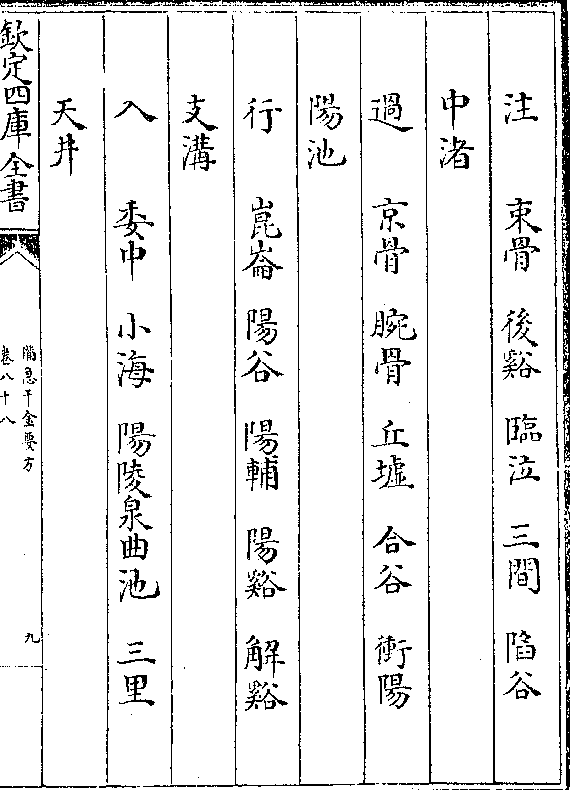 注　束骨　後谿　臨泣　三間　陷谷
中渚
過　京骨　腕骨　丘墟　合谷　衝陽
陽池
行　崑崙　陽谷　陽輔　陽谿　解谿
支溝
入　委中　小海　陽陵泉　曲池　三里
天井
欽定四庫全書
備急千金要方
卷八十八
九